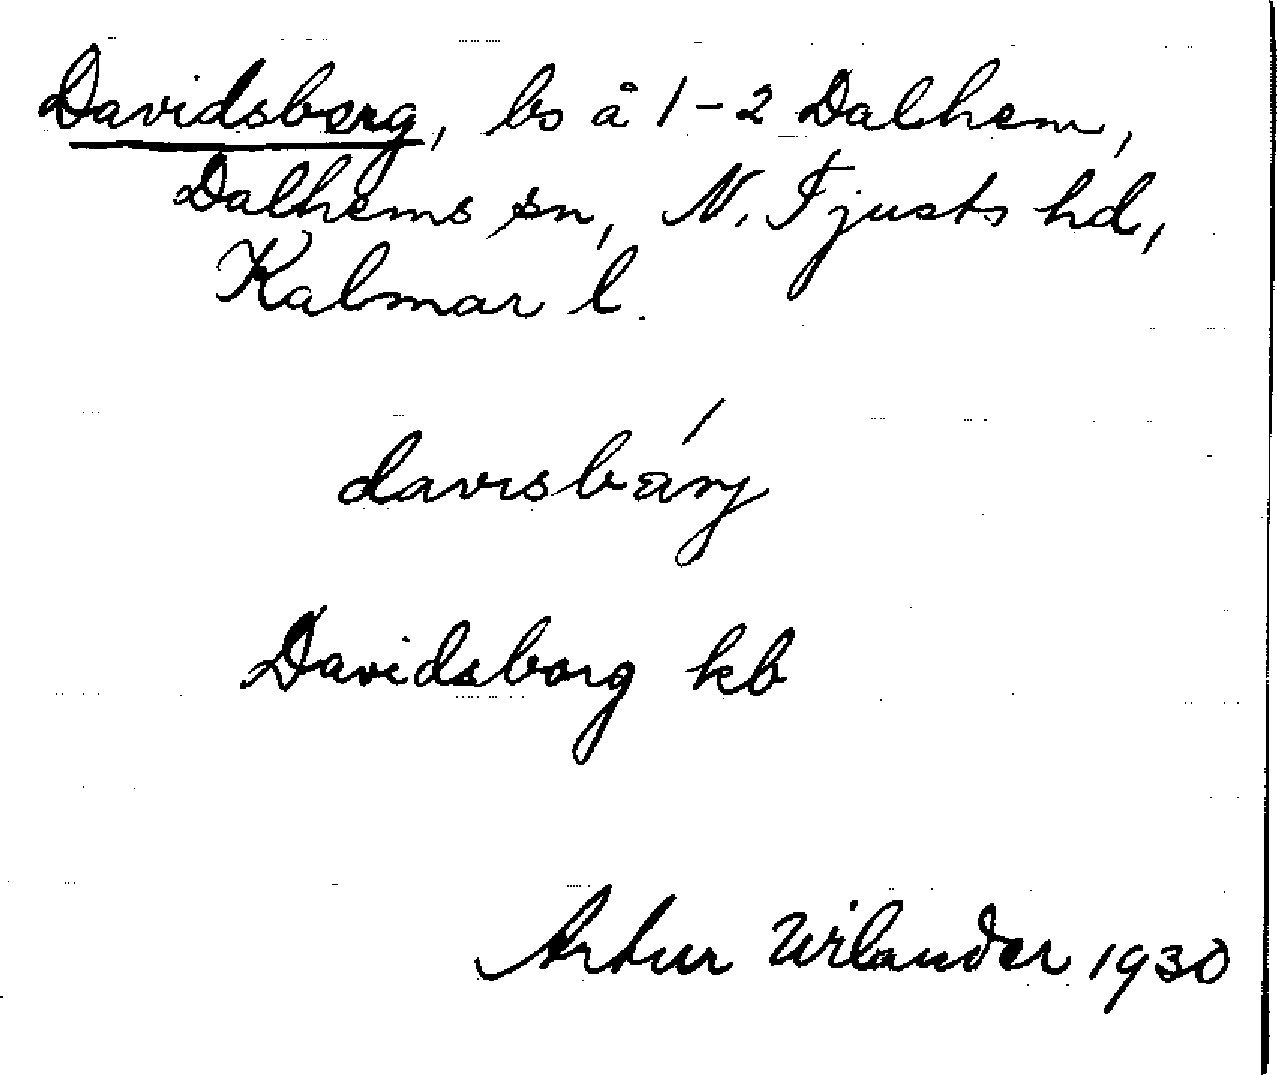 Davidsborg, bs å 1-2 Dalhem,
Dalhems sn, N. Tjusts hd,
Kalmar l.
davisbárj
Davidsborg kb
Artur Wilander 1930